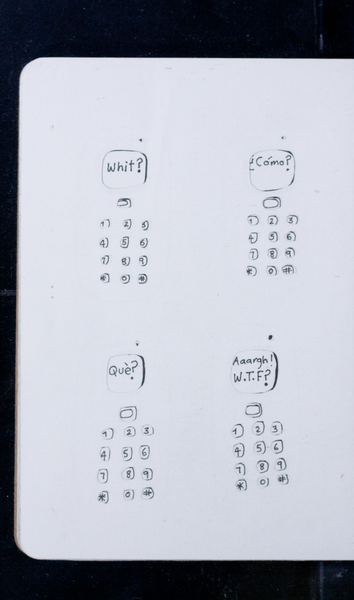 Whit?
1 2 3
4 5 6
7 8 9
* 0 #
¿Cómo?
1 2 3
4 5 6
7 8 9
* 0 #
Què?
1 2 3
4 5 6
7 8 9
* 0 #
Aaargh!
W.T.F?
1 2 3
4 5 6
7 8 9
* 0 #